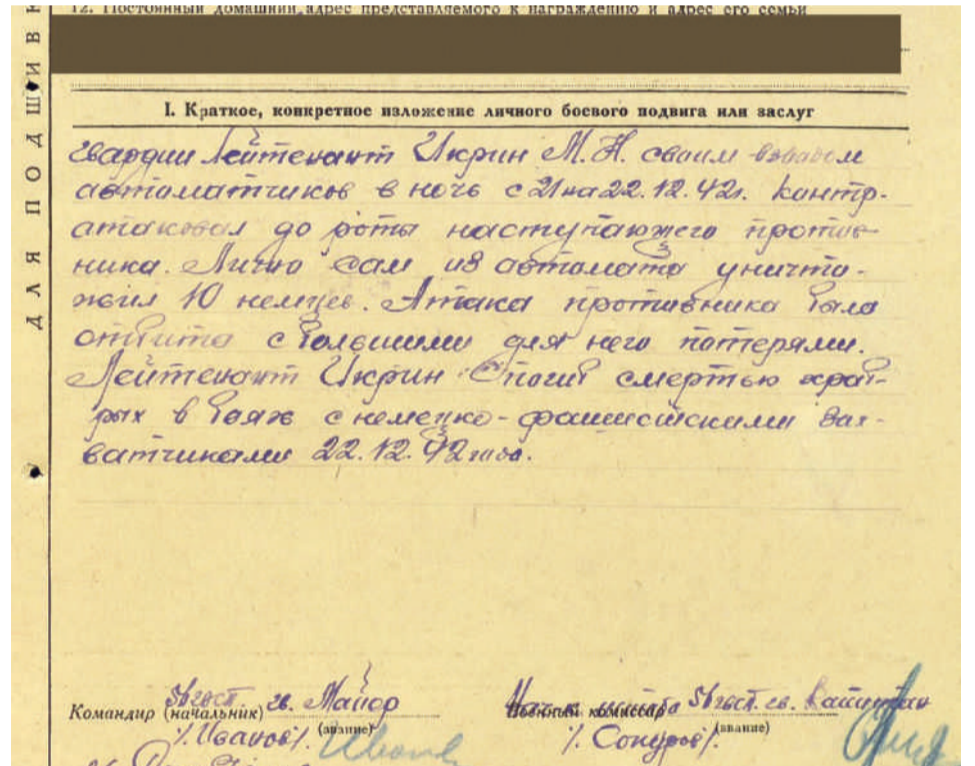 12. Постоянный домашний адрес представляемого к награждению и адрес его семьи
ДЛЯ ПОДШИВ
I. Краткое, конкретное изложение личного боевого подвига или заслуг
гвардии Лейтенант Икрин М.Н. своим взводом
автоматчиков в ночь с 21 на 22.12.42г. контр-
атаковал до роты наступающего против-
ника. Лично сам из автомата уничто-
жил 10 немцев. Атака противника была
отбита с большими для него потерями.
Лейтенант Икрин погиб смертью храб-
рых в боях с немецко-фашистскими зах-
ватчиками 22.12.42 года.
Командир (начальник) гв. Майор
Военный комиссар гв. Капитан
(звание)
(звание)
/Иванов/.